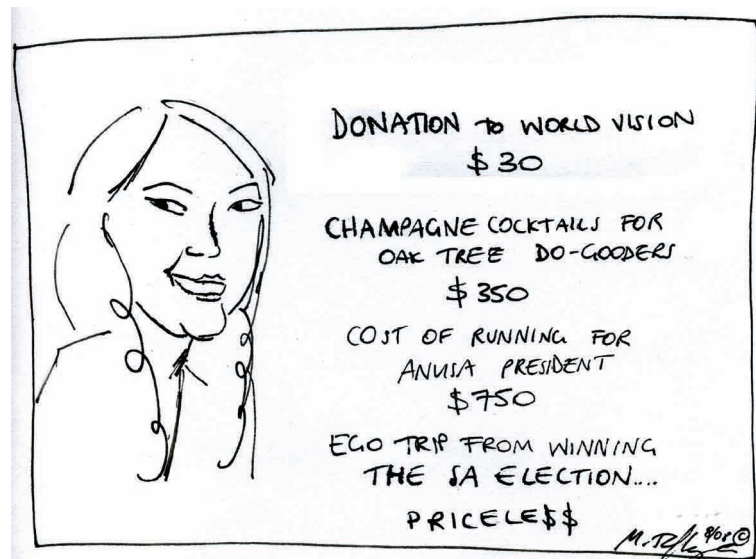 DONATION to WORLD VISION
$30
CHAMPAGNE COCKTAILS FOR
OAK TREE DO-GOODERS
$350
COST OF RUNNING FOR
ANUSA PRESIDENT
$750
EGO TRIP FROM WINNING
THE SA ELECTION....
PRICELE$$